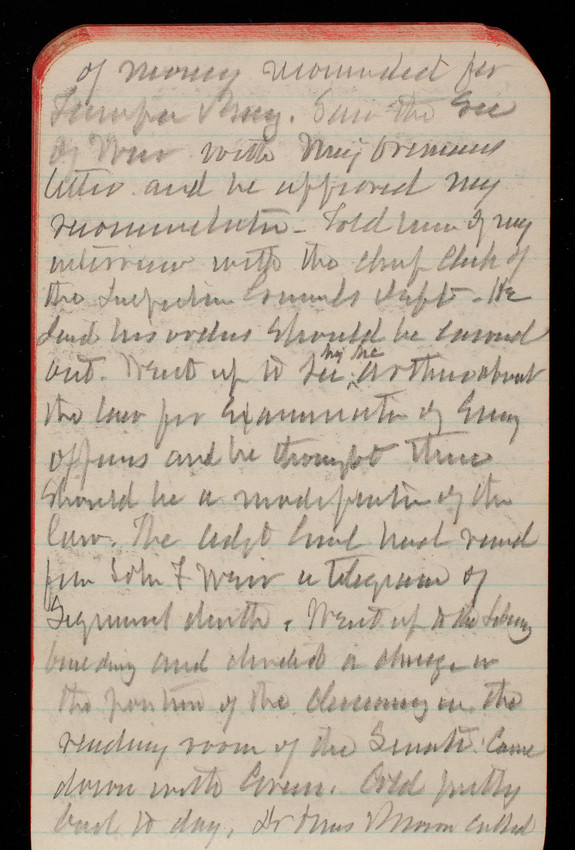 of money recommended for
Saw the Sec
of War with Maj
letter and he approved my
recommendation - Told him of my
interview with the chief clerk of
the Inspection Dept - He
said his orders should be carried
out. Went up to see Mr Mc Arthur about
the law for Examination of Engr
officers and he thought there
should be a modification of the
law. The Adgt Genl had recd
from John F Weir a telegram of
death. Went up to the Library
building and decided a change in
the position of the in the
reading room of the Senate. Came
down with Green. Cold pretty
bad to day. Dr & Mrs called